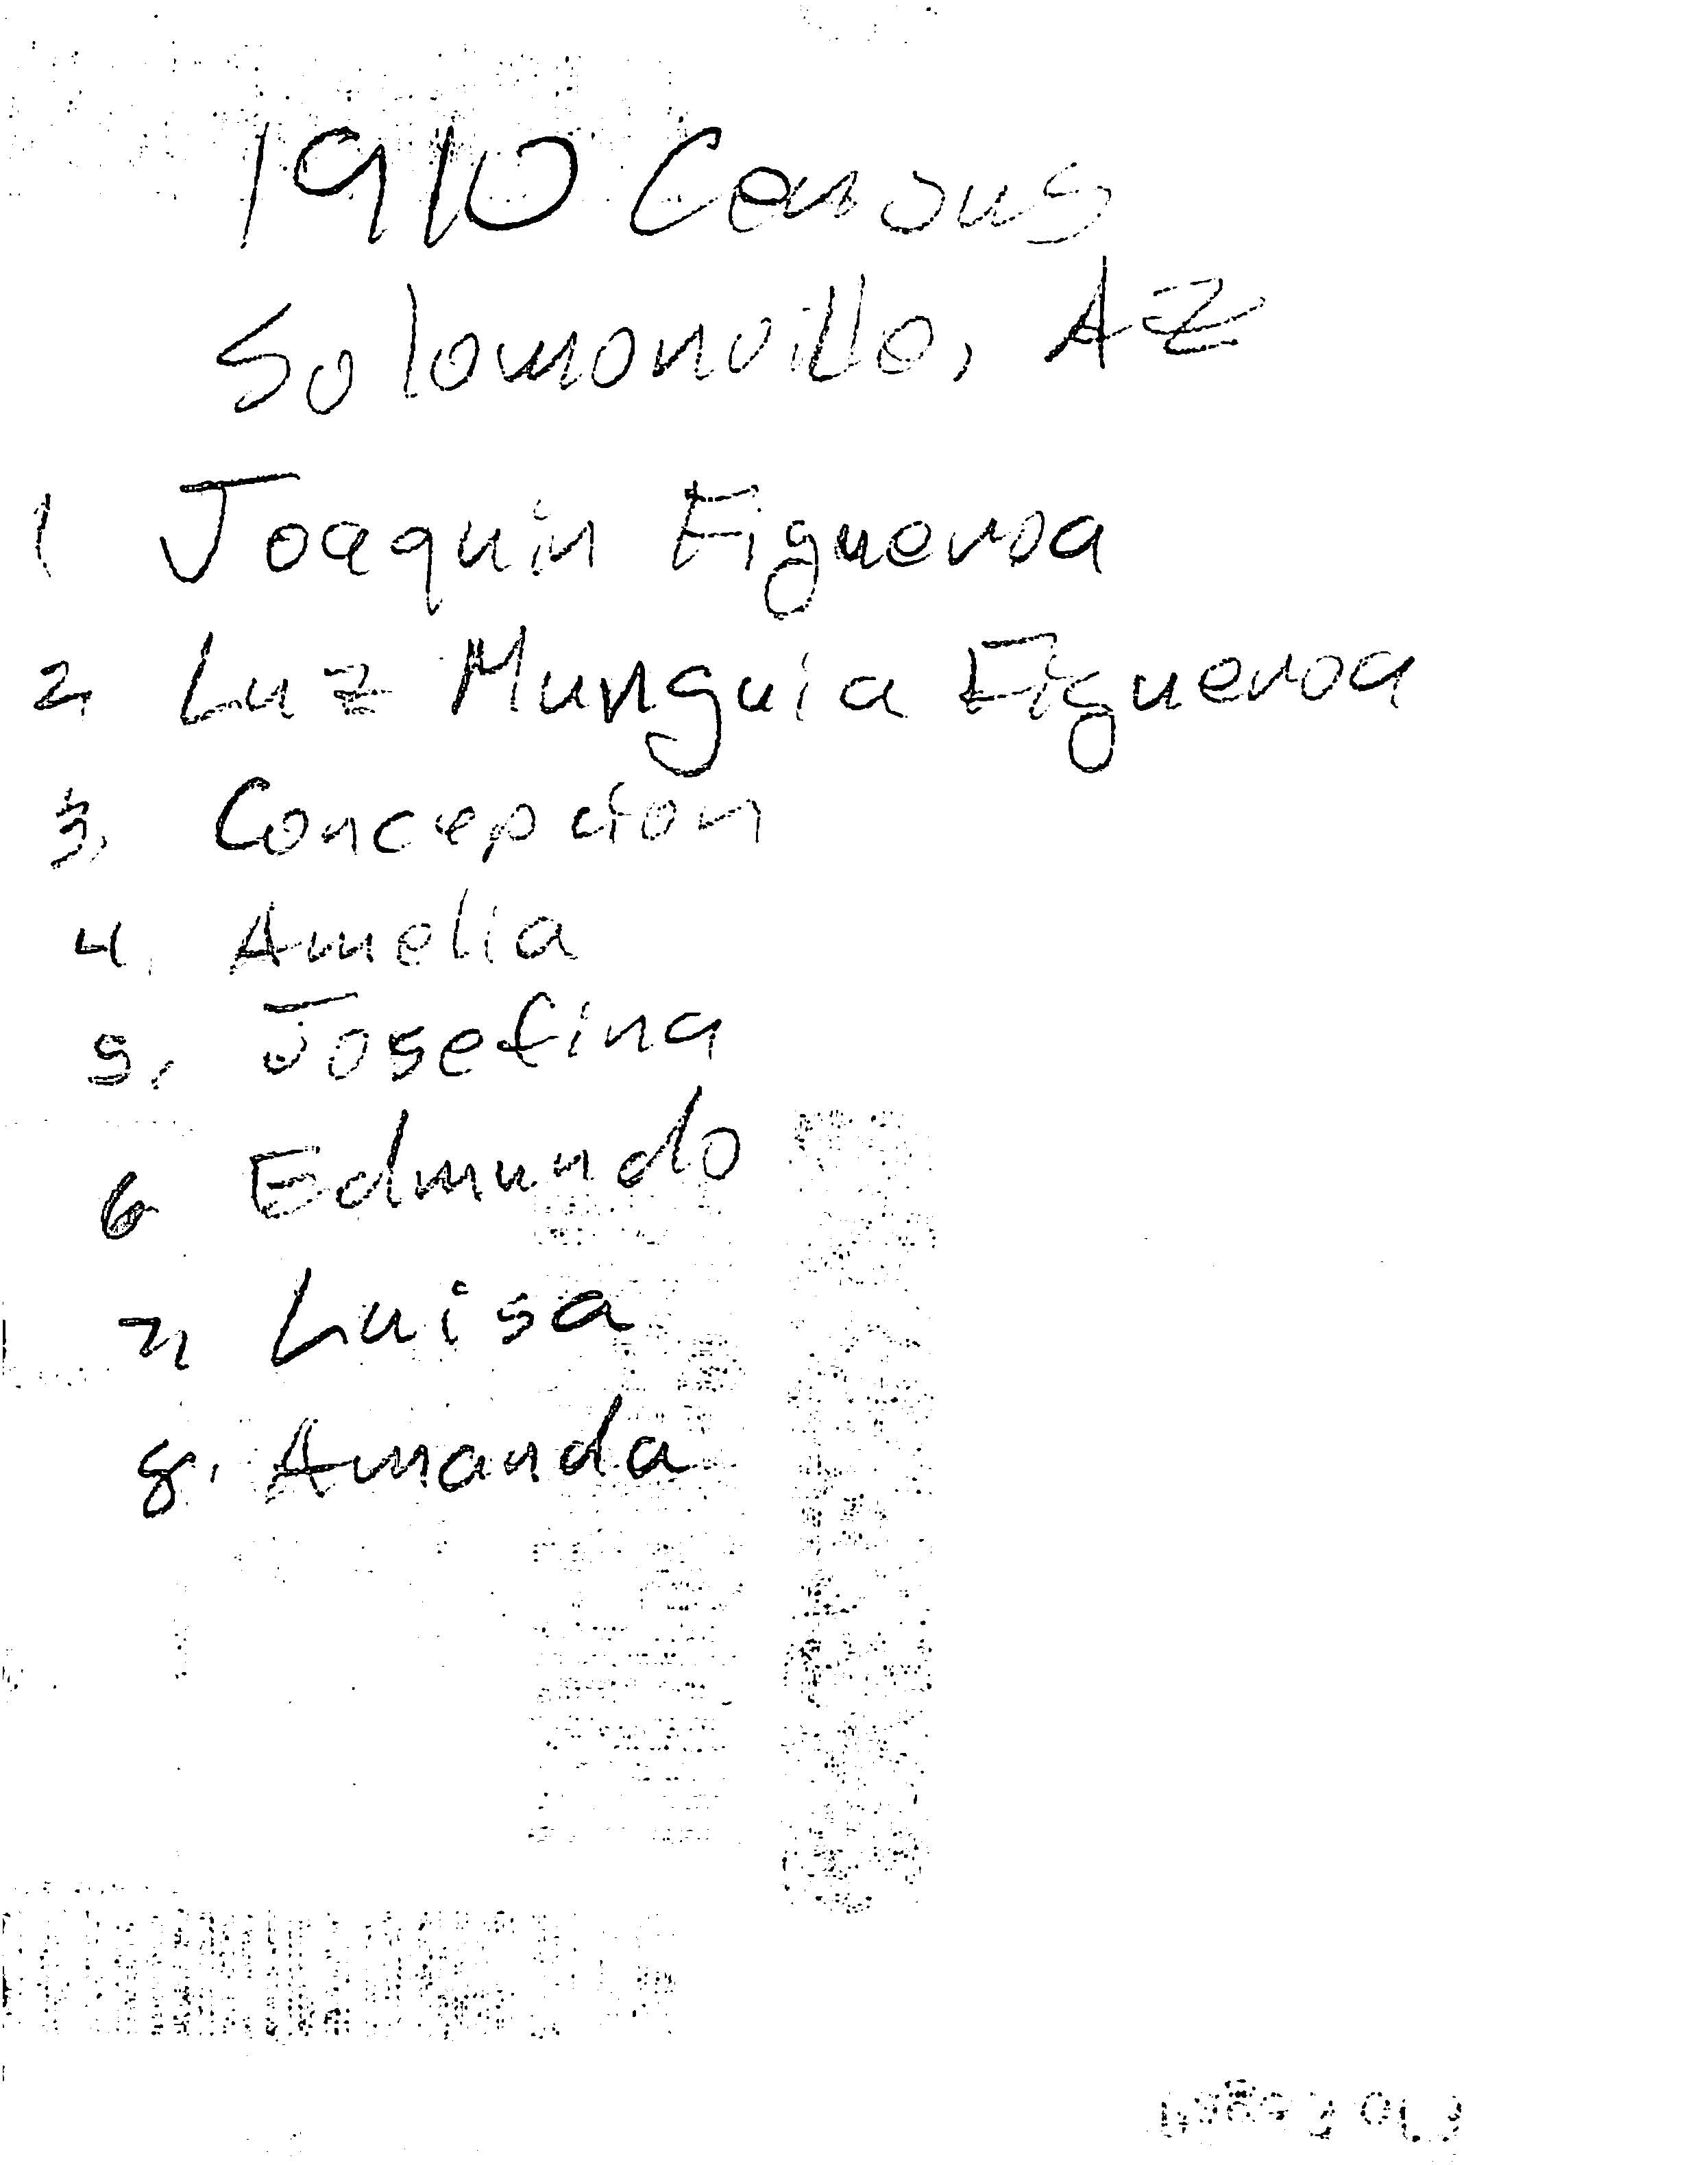 1910 Census
Solomonville, AZ
1 Joaquin Figueroa
2 Luz Munguia Figueroa
3. Concepcion
4. Amelia
5. Josefina
6 Edmundo
7 Luisa
8. Amanda